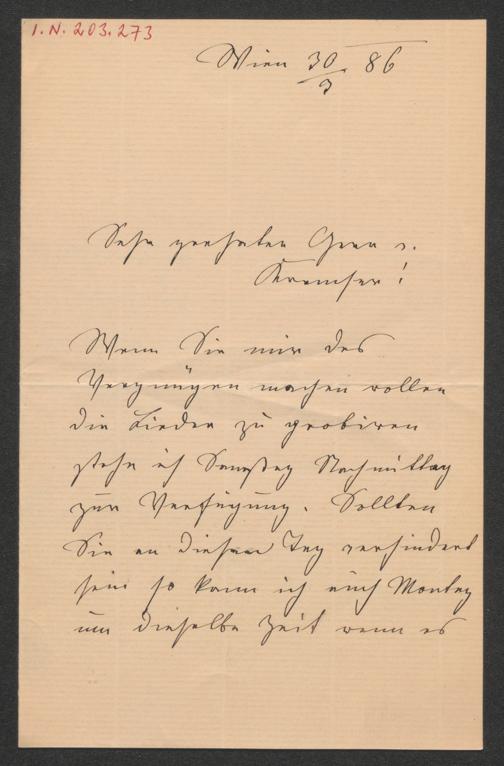 I.N. 203.273
Wien 30/9 86
Sehr geehrter Herr v.
Kremser!
Wenn Sie mir das
Vergnügen machen wollen
die Lieder zu probiren
stehe ich Samstag Nachmittag
zur Verfügung. Sollten
Sie an diesem Tag verhindert
sein so kann ich auch Montag
um dieselbe Zeit wenn es